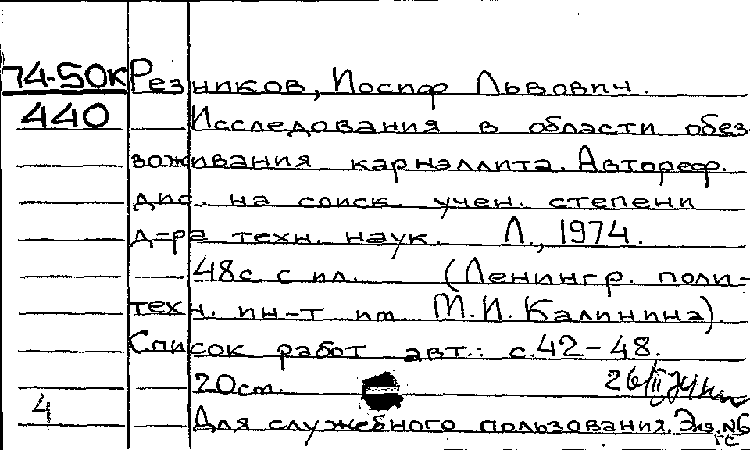 74-50к Резников, Иосиф Львович.
440 Исследования в области обез
воживания карналлита. Автореф.
дис. на соиск. учен. степени
д-ра техн. наук. Л., 1974.
48с. с ил. (Ленингр. поли-
техн. ин-т им. М.И. Калинина)
Список работ авт.: с.42-48.
20см. 26/II
4 Для служебного пользования. Экз. №6